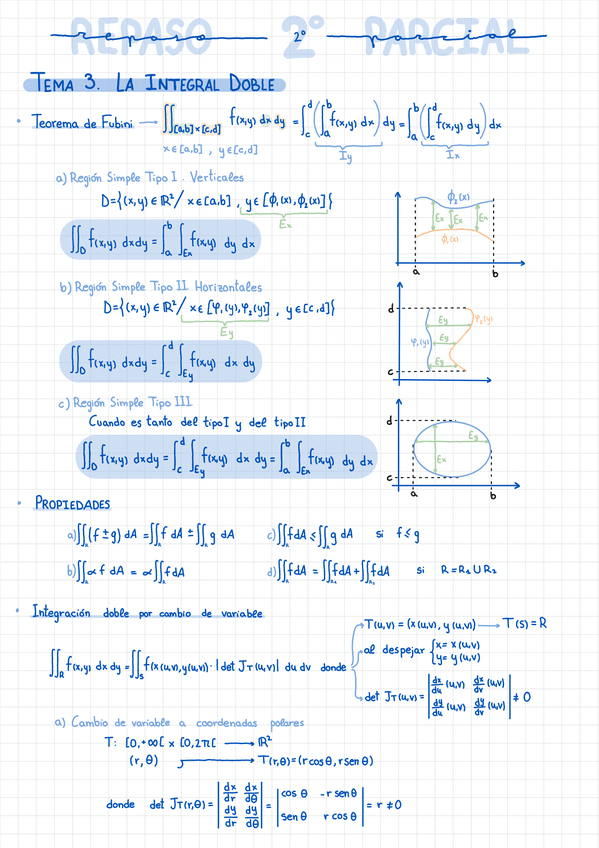 REPASO 2º PARCIAL
repaso 2º parcial
TEMA 3. LA INTEGRAL DOBLE
• Teorema de Fubini → ∬[a,b]×[c,d] f(x,y) dx dy = ∫_c^d (∫_a^b f(x,y) dx) dy = ∫_a^b (∫_c^d f(x,y) dy) dx
x∈[a,b] , y∈[c,d] Iy Ix
a) Región Simple Tipo I . Verticales
D={(x,y)∈ℝ² / x∈[a,b] , y∈[ϕ₁(x),ϕ₂(x)]}
Ex
∬_D f(x,y) dxdy = ∫_a^b ∫_Ex f(x,y) dy dx
ϕ₂(x)
Ex Ex Ex
ϕ₁(x)
a b
b) Región Simple Tipo II Horizontales
D={(x,y)∈ℝ² / x∈[φ₁(y),φ₂(y)] , y∈[c,d]}
Ey
∬_D f(x,y) dxdy = ∫_c^d ∫_Ey f(x,y) dx dy
d
Ey φ₂(y)
φ₁(y) Ey
Ey
c
c) Región Simple Tipo III
Cuando es tanto del tipo I y del tipo II
∬_D f(x,y) dxdy = ∫_c^d ∫_Ey f(x,y) dx dy = ∫_a^b ∫_Ex f(x,y) dy dx
d
Ey
Ex
c
a b
• PROPIEDADES
a) ∬_R (f ± g) dA = ∬_R f dA ± ∬_R g dA c) ∬_R f dA ≤ ∬_R g dA si f ≤ g
b) ∬_R ∝ f dA = ∝ ∬_R f dA d) ∬_R f dA = ∬_R₁ f dA + ∬_R₂ f dA si R = R₁ U R₂
• Integración doble por cambio de variable
∬_R f(x,y) dx dy = ∬_S f(x(u,v), y(u,v)) · |det J_T(u,v)| du dv donde
T(u,v) = (x(u,v), y(u,v)) → T(S) = R
al despejar { x = x(u,v)
y = y(u,v)
det J_T(u,v) = | dx/du (u,v) dx/dv (u,v) | ≠ 0
| dy/du (u,v) dy/dv (u,v) |
a) Cambio de variable a coordenadas polares
T: [0,+∞[ x [0,2π[ → ℝ²
(r, θ) → T(r,θ)=(r cos θ, r sen θ)
donde det J_T(r,θ) = | dx/dr dx/dθ | = | cos θ -r sen θ | = r ≠ 0
| dy/dr dy/dθ | | sen θ r cos θ |